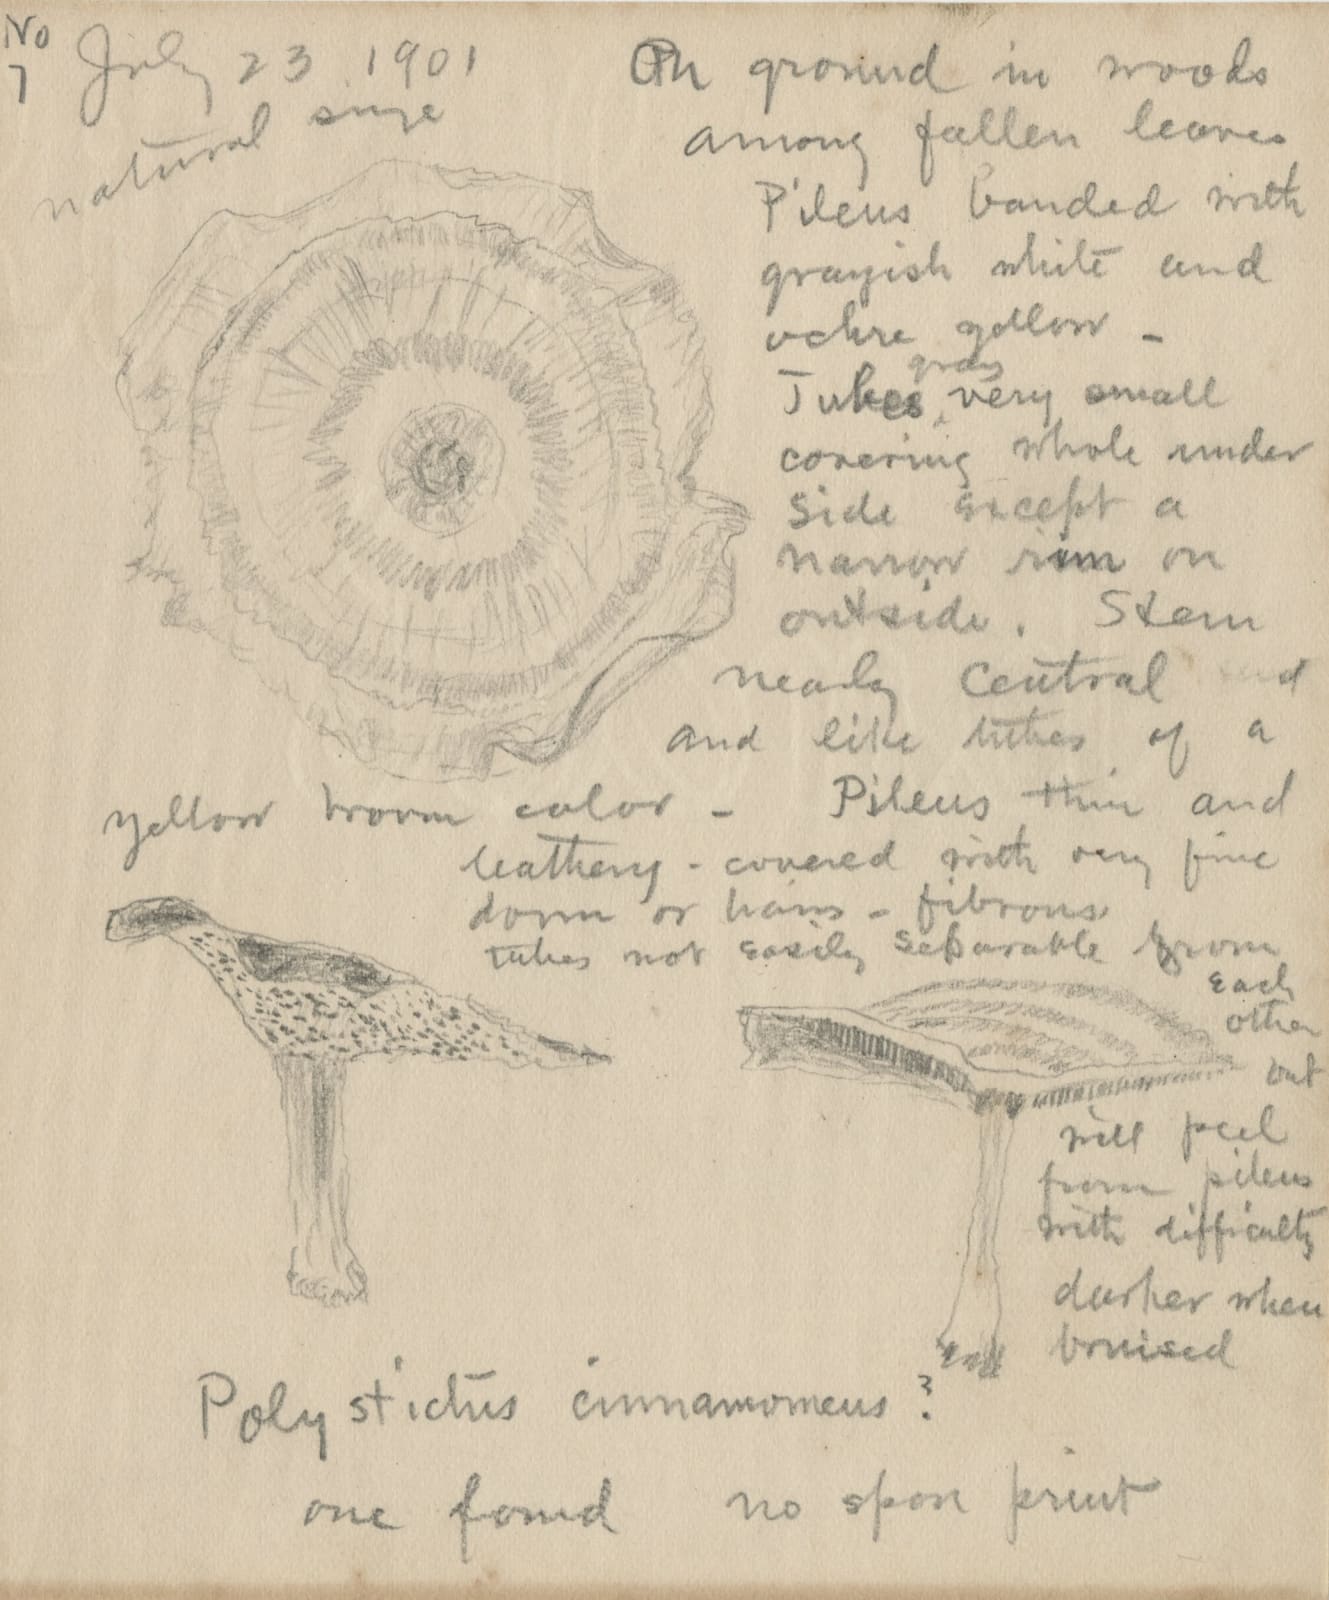 No
7
July 23 1901
natural size
On ground in woods
among fallen leaves
Pileus banded with
grayish white and
ochre yellow -
gray
Tubes, very small
covering whole under
side except a
narrow rim on
outside. Stem
nearly central
and like tubes of a
yellow brown color - Pileus thin and
leathery - covered with very fine
down or hairs - fibrous
tubes not easily separable from
each
other
but
will peel
from pileus
with difficulty
darker when
bruised
Polystictus cinnamomeus?
one found no spore print